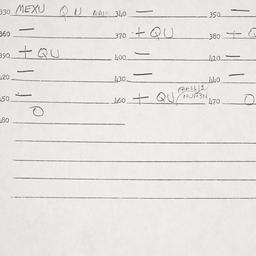 330 MEXU QU 340 — 350 —
360 — 370 + QU 380 + Q
390 + QU 400 — 410 —
420 — 430 — 440 —
450 — 460 + QU 470 O
480 O